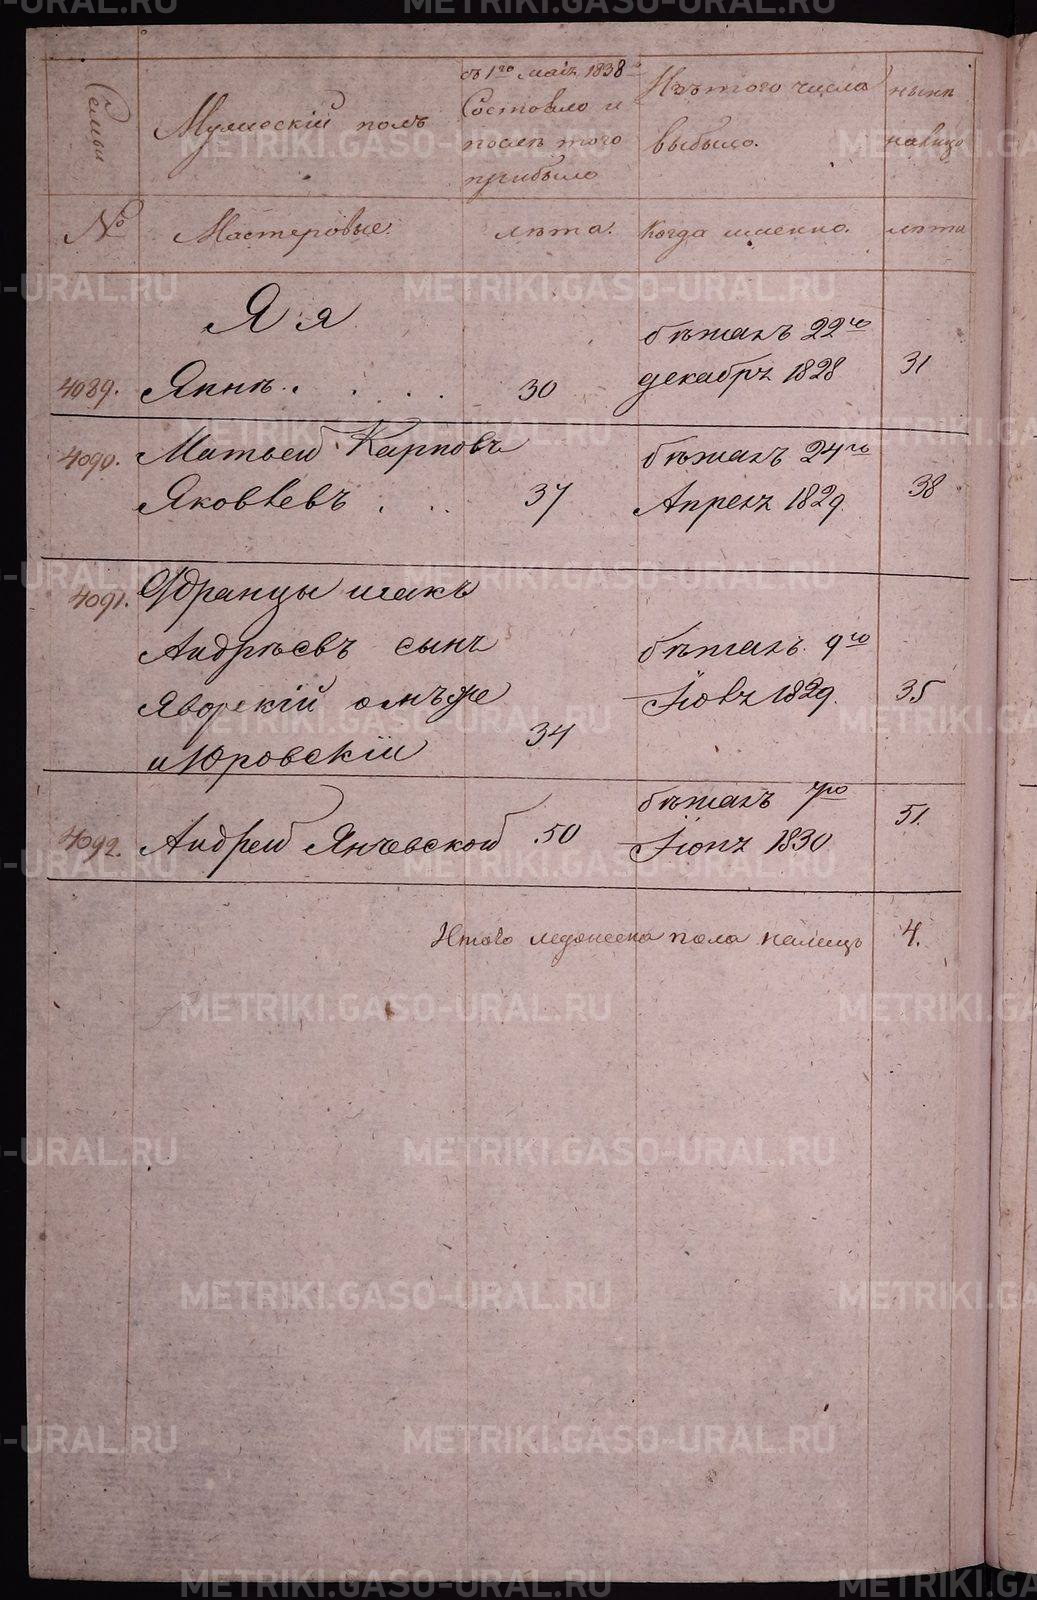 METRIKI.GASO-URAL.RU
Семьи
Мужеский полъ
съ 1го маія 1838го
Состояло и
послѣ того
прибыло
Изъ того числа
выбыло.
нынѣ
налицо
№
Мастеровые.
лѣта.
Когда именно.
лѣта
Я я
4089.
Яннъ . . . .
30
бѣжалъ 22го
декабря 1828
31
4090.
Матвей Карповъ
Яковлевъ . . .
37
бѣжалъ 24го
Апреля 1829.
38
4091.
Францышакъ
Андрѣевъ сынъ
Яворскій онъ же
и Юровскій
34
бѣжалъ 9го
Іюля 1829.
35
4092.
Андрей Янчевской
50
бѣжалъ 7го
Іюня 1830
51.
Итого мужеска пола налицо
4.